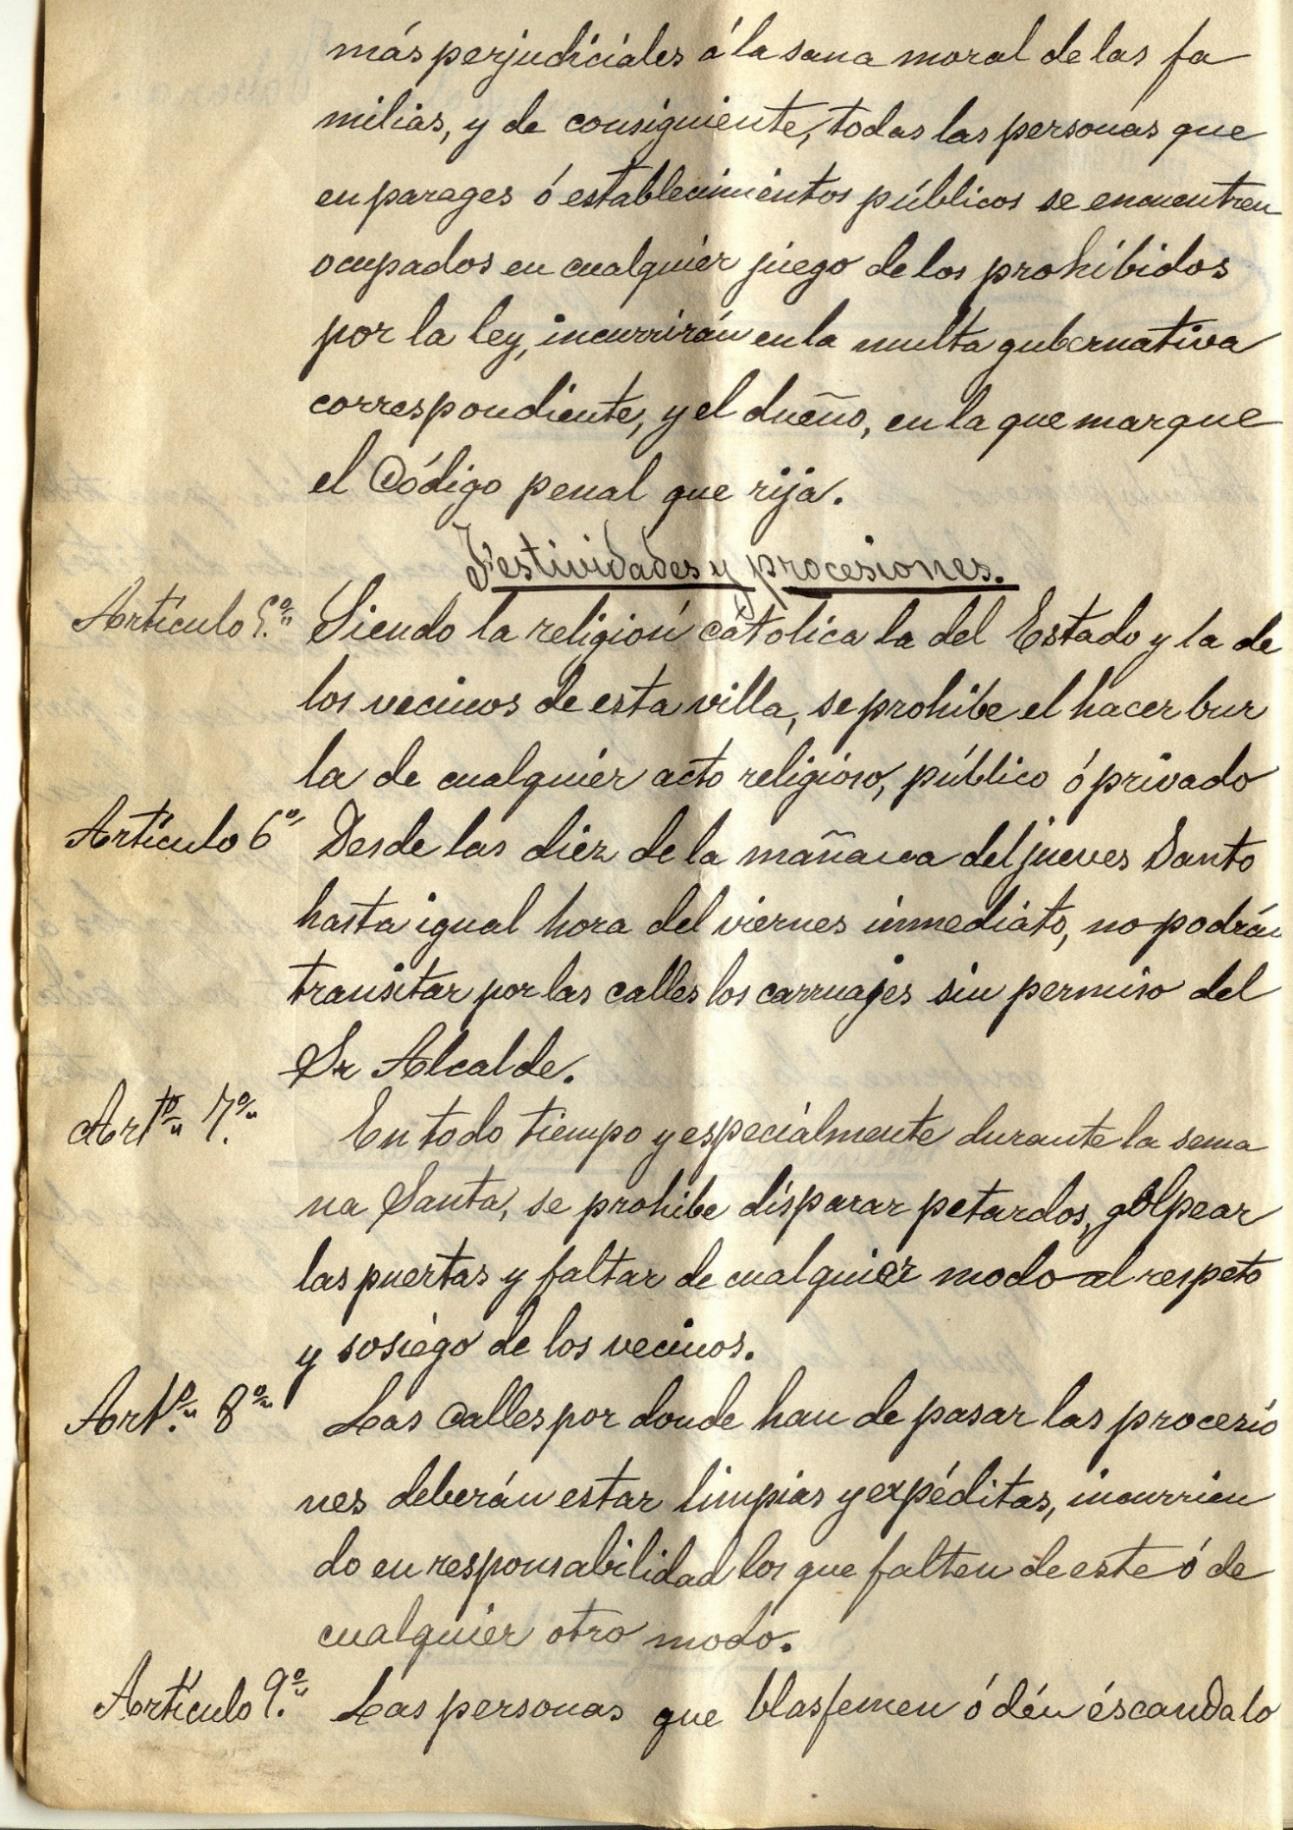 más perjudiciales á la sana moral de las fa
milias, y de consiguiente, todas las personas que
en parages ó establecimientos públicos se encuentren
ocupados en cualquier juego de los prohibidos
por la ley, incurrirán en la multa gubernativa
correspondiente, y el dueño, en la que marque
el Código penal que rija.
Festividades y procesiones.
Artículo 5.º Siendo la religión católica la del Estado y la de
los vecinos de esta villa, se prohibe el hacer bur
la de cualquier acto religioso, público ó privado
Artículo 6º Desde las diez de la mañana del jueves Santo
hasta igual hora del viernes inmediato, no podrán
transitar por las calles los carruajes sin permiso del
Sr Alcalde.
Artº 7.º En todo tiempo y especialmente durante la sema
na Santa, se prohibe disparar petardos, golpear
las puertas y faltar de cualquier modo al respeto
y sosiego de los vecinos.
Artº. 8º Las Calles por donde han de pasar las procesio
nes deberán estar limpias y expéditas, incurrien
do en responsabilidad los que falten de este ó de
cualquier otro modo.
Artículo 9.º Las personas que blasfemen ó dén éscandalo